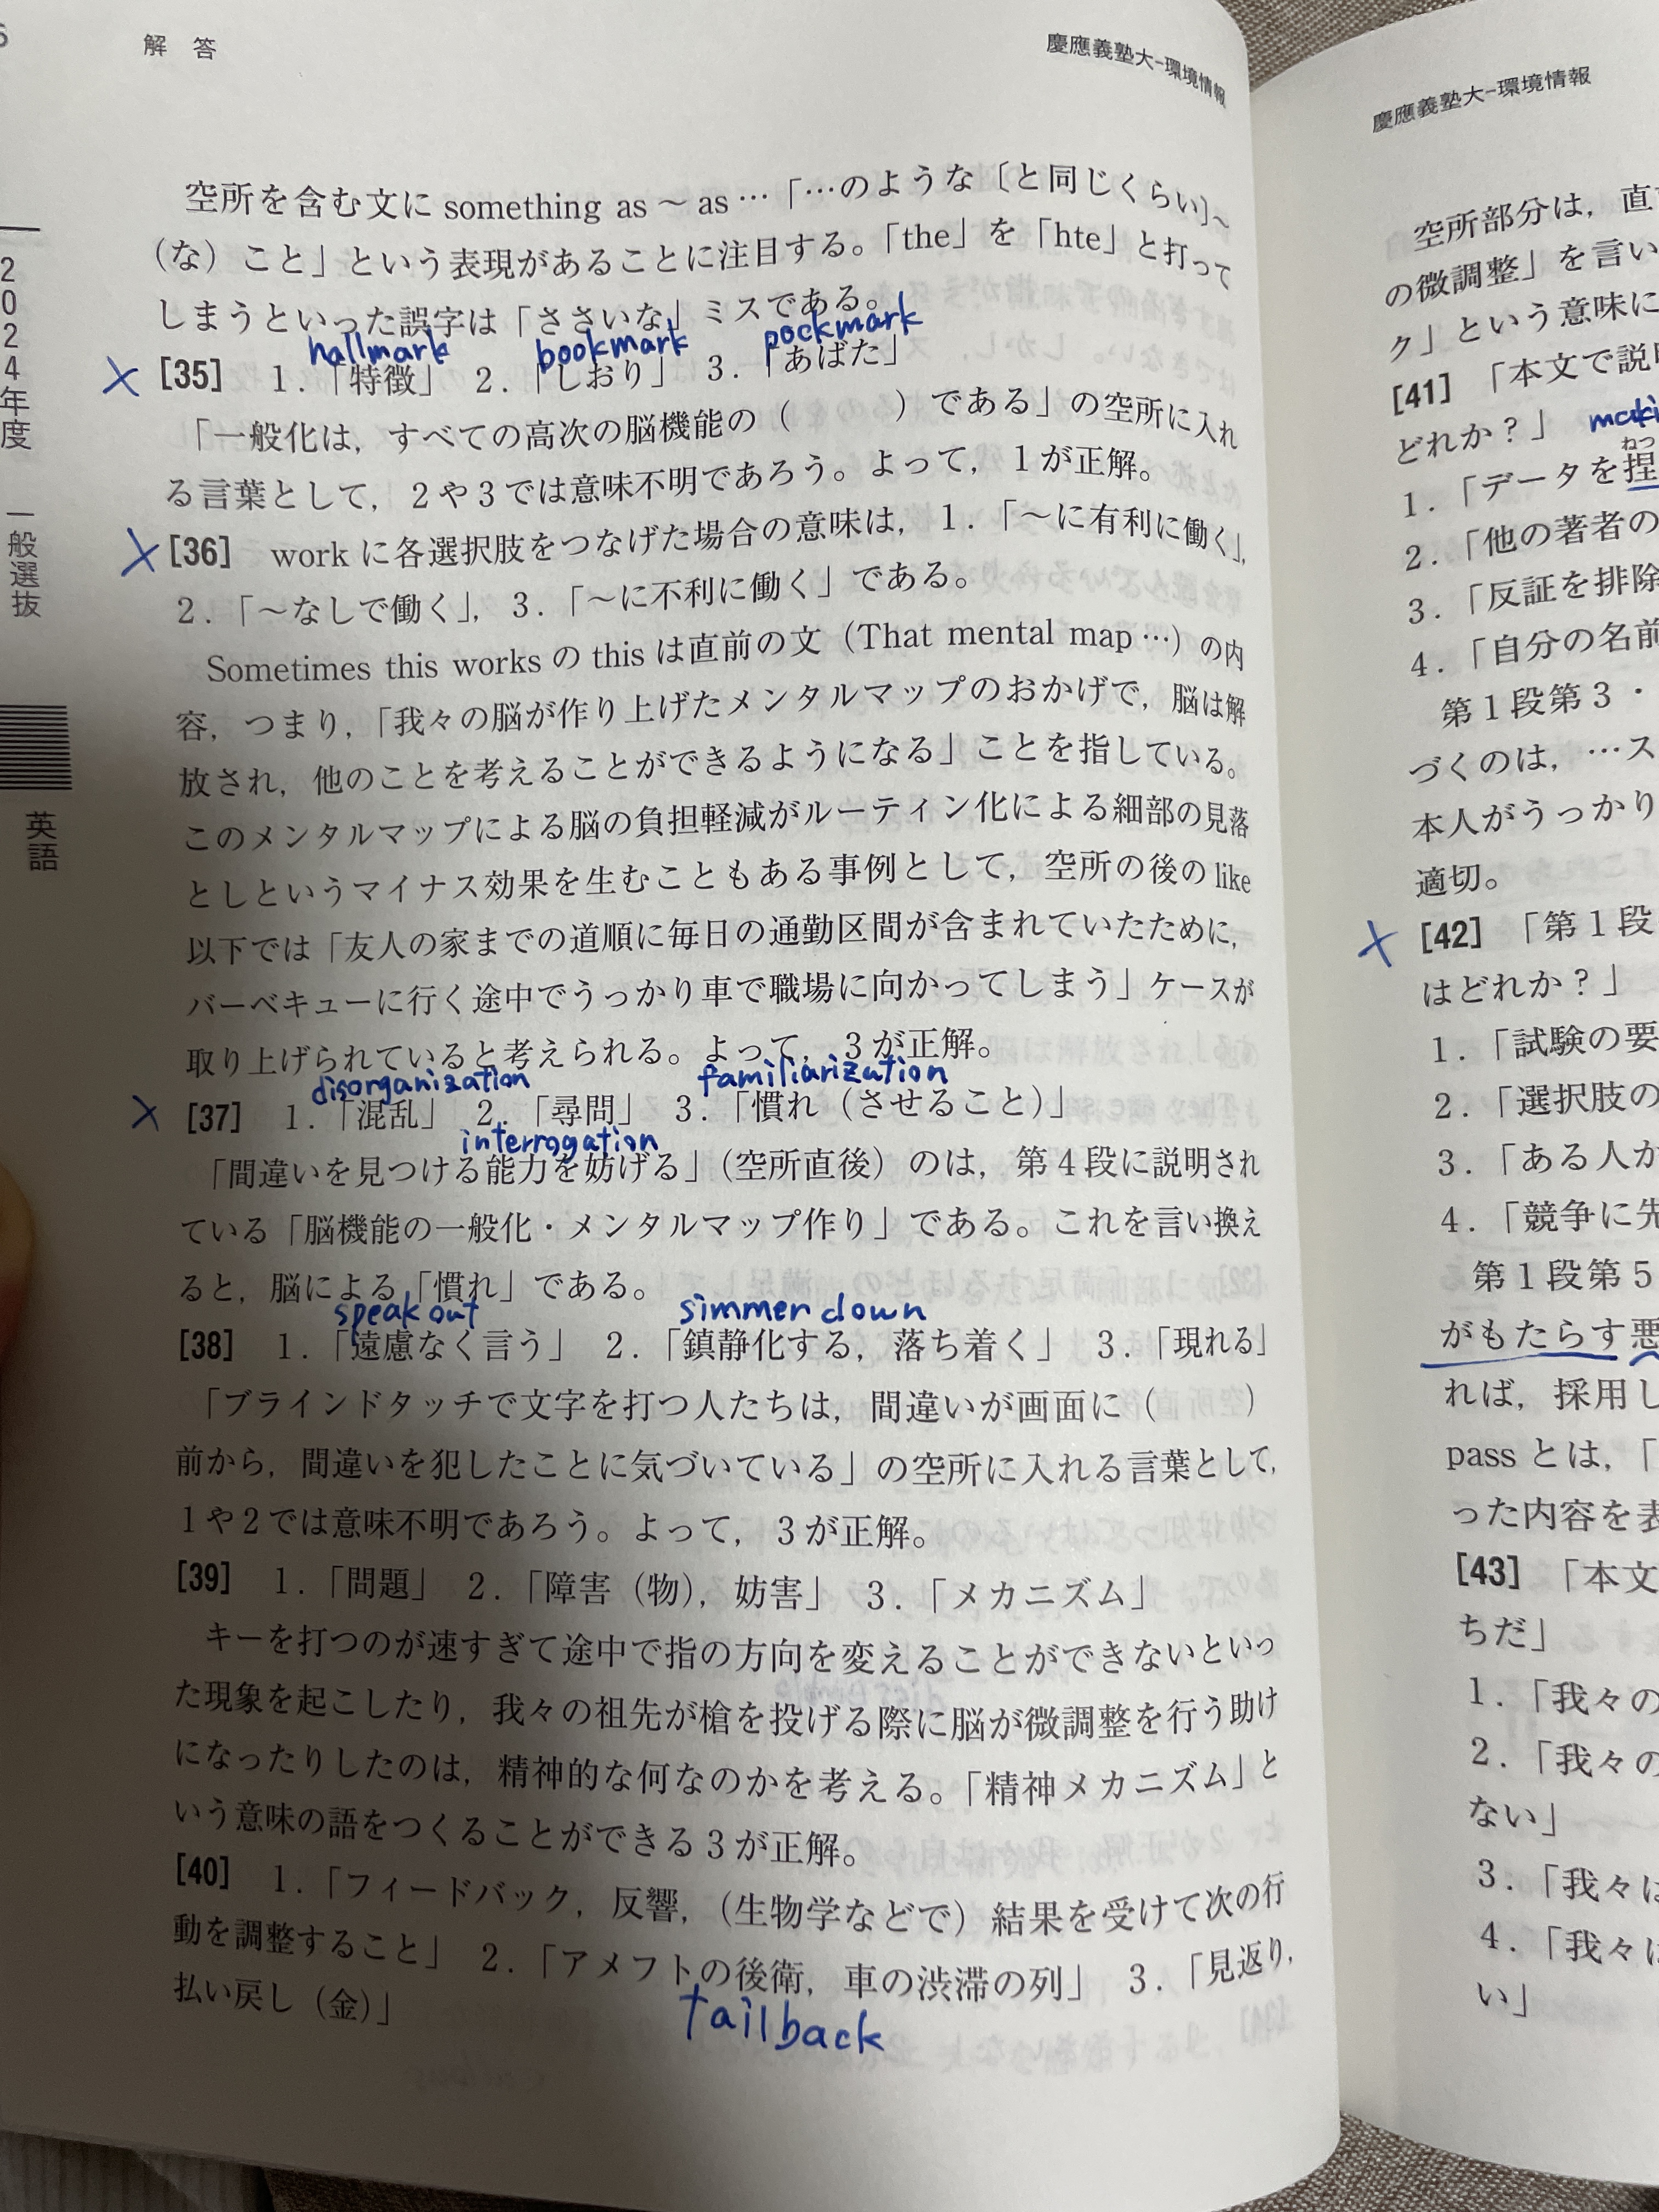 解答
慶應義塾大-環境情報
空所を含む文に something as ～ as … 「…のような〔と同じくらい〕～
(な) こと」という表現があることに注目する。「the」を「hte」と打って
しまうといった誤字は「ささいな」ミスである。
hallmark bookmark pockmark
× [35] 1.「特徴」 2.「しおり」 3.「あばた」
「一般化は，すべての高次の脳機能の（ ）である」の空所に入れ
る言葉として，2や3では意味不明であろう。よって，1が正解。
× [36] work に各選択肢をつなげた場合の意味は，1.「～に有利に働く」，
2.「～なしで働く」，3.「～に不利に働く」である。
Sometimes this works の this は直前の文（That mental map …）の内
容，つまり，「我々の脳が作り上げたメンタルマップのおかげで，脳は解
放され，他のことを考えることができるようになる」ことを指している。
このメンタルマップによる脳の負担軽減がルーティン化による細部の見落
としというマイナス効果を生むこともある事例として，空所の後の like
以下では「友人の家までの道順に毎日の通勤区間が含まれていたために，
バーベキューに行く途中でうっかり車で職場に向かってしまう」ケースが
取り上げられていると考えられる。よって，3が正解。
disorganization familiarization
× [37] 1.「混乱」 2.「尋問」 3.「慣れ（させること）」
interrogation
「間違いを見つける能力を妨げる」（空所直後）のは，第4段に説明され
ている「脳機能の一般化・メンタルマップ作り」である。これを言い換え
ると，脳による「慣れ」である。
speak out simmer down
[38] 1.「遠慮なく言う」 2.「鎮静化する，落ち着く」 3.「現れる」
「ブラインドタッチで文字を打つ人たちは，間違いが画面に（ ）
前から，間違いを犯したことに気づいている」の空所に入れる言葉として，
1や2では意味不明であろう。よって，3が正解。
[39] 1.「問題」 2.「障害（物），妨害」 3.「メカニズム」
キーを打つのが速すぎて途中で指の方向を変えることができないといっ
た現象を起こしたり，我々の祖先が槍を投げる際に脳が微調整を行う助け
になったりしたのは，精神的な何なのかを考える。「精神メカニズム」と
いう意味の語をつくることができる3が正解。
[40] 1.「フィードバック，反響，（生物学などで）結果を受けて次の行
動を調整すること」 2.「アメフトの後衛，車の渋滞の列」 3.「見返り，
払い戻し（金）」
tailback
2024年度 一般選抜
英語
慶應義塾大-環境情報
空所部分は，直
の微調整」を言い
ク」という意味に
[41] 「本文で説
どれか？」
ねつ
1.「データを捏
2.「他の著者の
3.「反証を排除
4.「自分の名前
第1段第3・
づくのは，…ス
本人がうっかり
適切。
× [42] 「第1段
はどれか？」
1.「試験の要
2.「選択肢の
3.「ある人が
4.「競争に先
第1段第5
がもたらす悪
れば，採用し
pass とは，「
った内容を表
[43] 「本文
ちだ」
1.「我々の
2.「我々の
ない」
3.「我々は
4.「我々は
い」